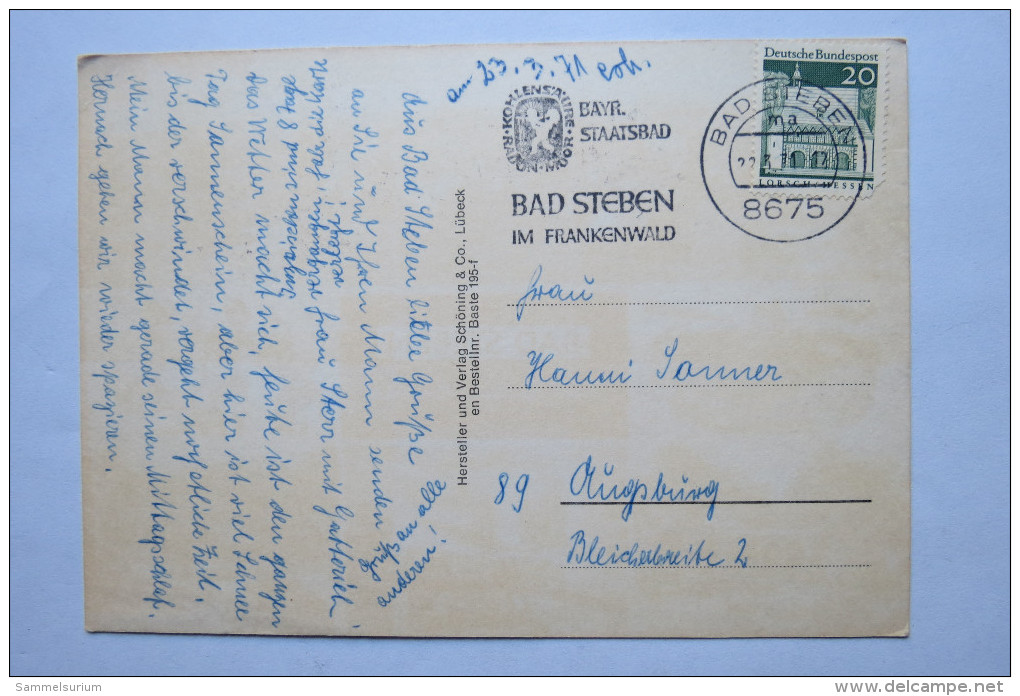 am 23.3.71 erh.
Deutsche Bundespost
20
LORSCH/HESSEN
BAD STEBEN
ma
22.3.71
8675
KOHLENSÄURE
RADON · MOOR
BAYR.
STAATSBAD
BAD STEBEN
IM FRANKENWALD
Aus Bad Steben liebe Grüße
an Sie und Ihren Mann senden
Frau Sterr mit Gatterich
Das Wetter macht sich, heute ist den ganzen
Tag Sonnenschein, aber hier ist viel Schnee
bis der verschwindet, vergeht noch etliche Zeit.
Mein Mann macht gerade seinen Mittagschlaf.
Hernach gehen wir wieder spazieren.
Gruß an alle
anderen!
Hersteller und Verlag Schöning & Co., Lübeck
en Bestellnr. Baste 195-f
Frau
Hanni Sonner
89 Augsburg
Bleicherbreite 2
Sammelsurium
www.delcampe.net